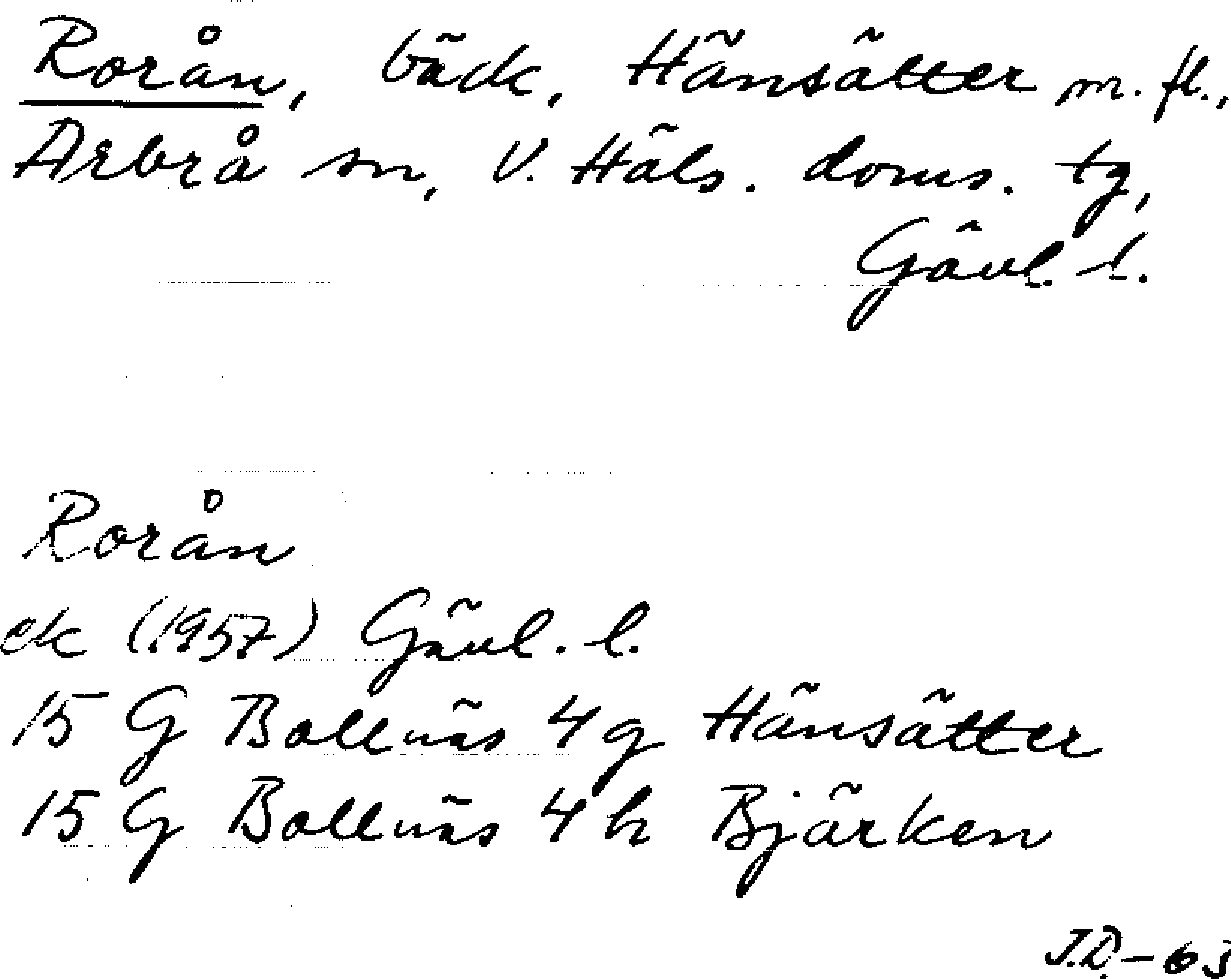 Rorån, bäck, Hänsätter m. fl.,
Arbrå sn, V. Häls. doms. tg,
Gävl. l.
Rorån
ek (1957) Gävl. l.
15 G Bollnäs 4 g Hänsätter
15 G Bollnäs 4 h Bjärken
J.D. - 63